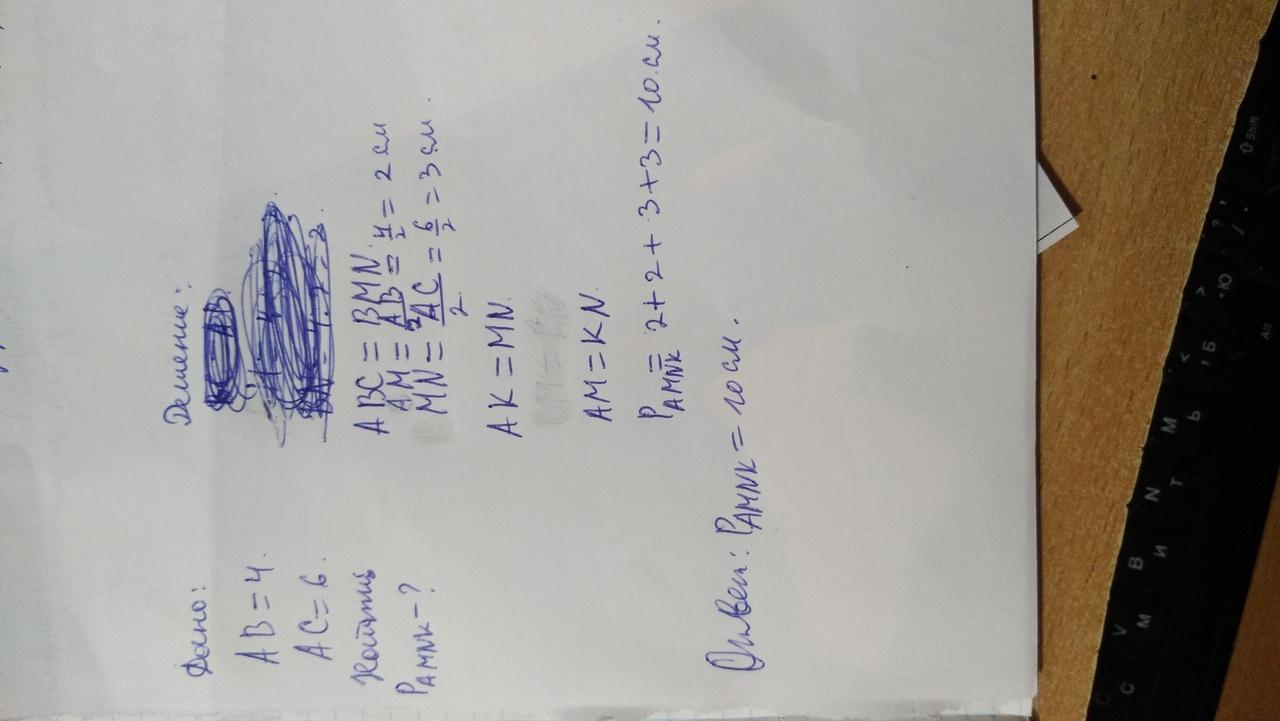 Дано:
AB = 4.
AC = 6.
Найти
P AMNK - ?
Решение:
ABC = BMN.
AM = AB/2 = 4/2 = 2 см
MN = AC/2 = 6/2 = 3 см.
AK = MN.
AM = KN.
P AMNK = 2 + 2 + 3 + 3 = 10 см.
Ответ: P AMNK = 10 см.
Shift
Alt
C V B N M < >
С М И Т Ь Б Ю